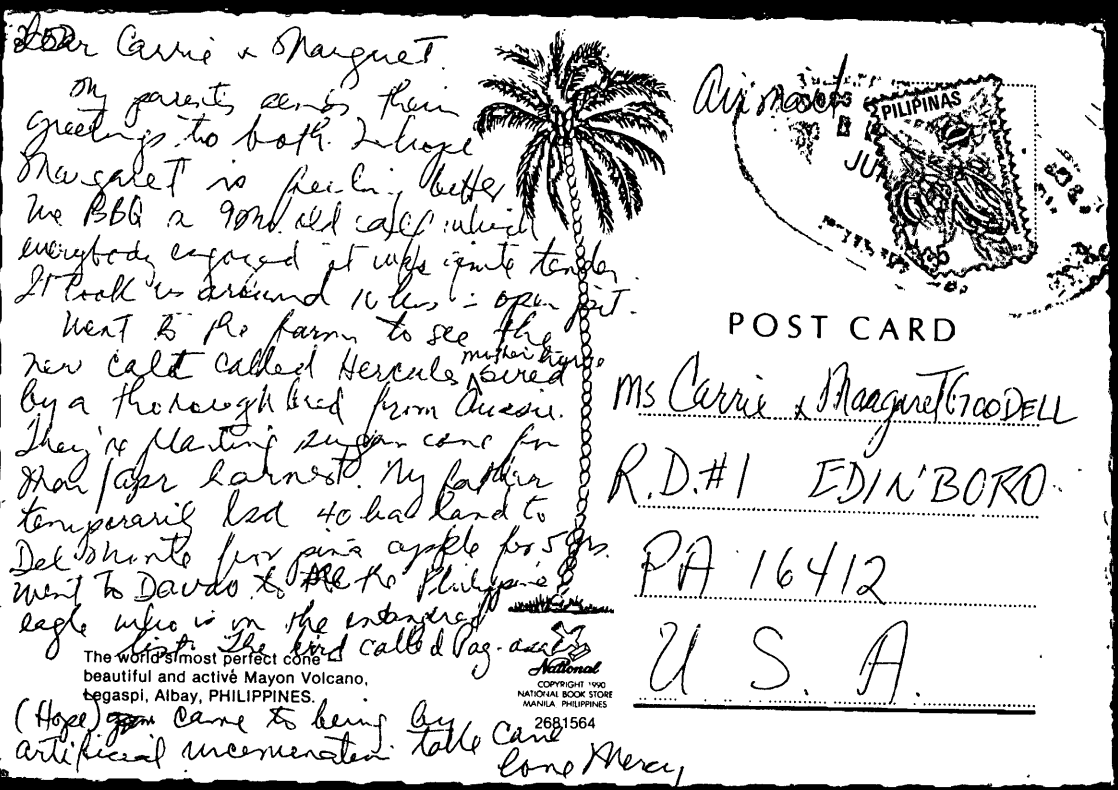 Dear Carrie & Marguet.
My parents sends their
greetings to both. I hope
Margaret is feeling better
We BBQ a 9mo. old calf which
everybody engoyed it was quite tender.
It took us around 10 hrs - open pit.
Went to the farm to see the
new colt called Hercules, mother horse sired
by a thoroughbred from Aussie.
They're planting sugar cane for
harvest. My father
temporarily 40 ha land to
Del Monte for pine apple for 5 yrs.
Went to Davao to the Philippine
eagle who is in the
list. The bird called Pag-asa
(Hope) came to being by
artificial take care
Love Mercy
The world's most perfect cone
beautiful and active Mayon Volcano,
Legaspi, Albay, PHILIPPINES.
National
COPYRIGHT 1990
NATIONAL BOOK STORE
MANILA PHILIPPINES
2681564
Airmail
PILIPINAS
POST CARD
Ms Carrie & Maagaret GOODELL
R.D.#1 EDIN'BORO
PA 16412
U. S. A.